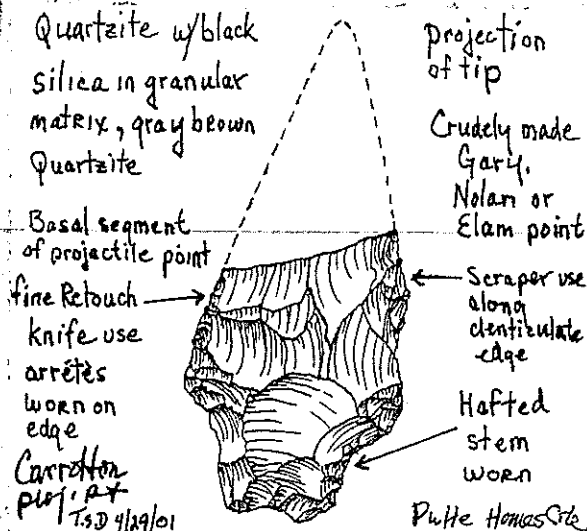 Quartzite w/black
silica in granular
matrix, gray brown
Quartzite
Basal segment
of projectile point
fine Retouch
knife use
arrêtès
worn on
edge
Carrollton
proj. pt
T.S.D 4/29/01
projection
of tip
Crudely made
Gary,
Nolan or
Elam point
Scraper use
along
denticulate
edge
Hafted
stem
worn
Homes